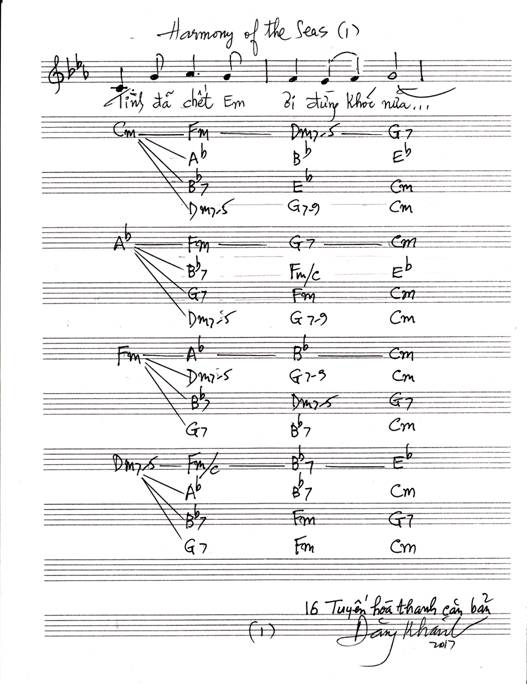 Harmony of the Seas (1)
Tình đã chết Em ơi đừng khóc nữa...
Cm Fm Dm7-5 G7
Ab Bb Eb
Bb7 Eb Cm
Dm7-5 G7-9 Cm
Ab Fm G7 Cm
Bb7 Fm/c Eb
G7 Fm Cm
Dm7-5 G7-9 Cm
Fm Ab Bb Cm
Dm7-5 G7-9 Cm
Bb7 Dm7-5 G7
G7 Bb7 Cm
Dm7-5 Fm/c Bb7 Eb
Ab Bb7 Cm
Bb7 Fm G7
G7 Fm Cm
16 Tuyến hòa thanh căn bản
(1) Đăng Khánh
2017